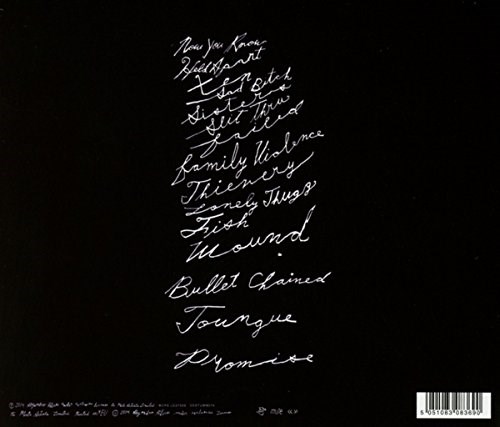 Now You Know
Held Apart
Xen
Sad Bitch
Sisters
Slit Thru
Failed
Family Violence
Thievery
Lonely Thugs
Fish
Wound
Bullet Chained
Toungue
Promise
5 051083 083690